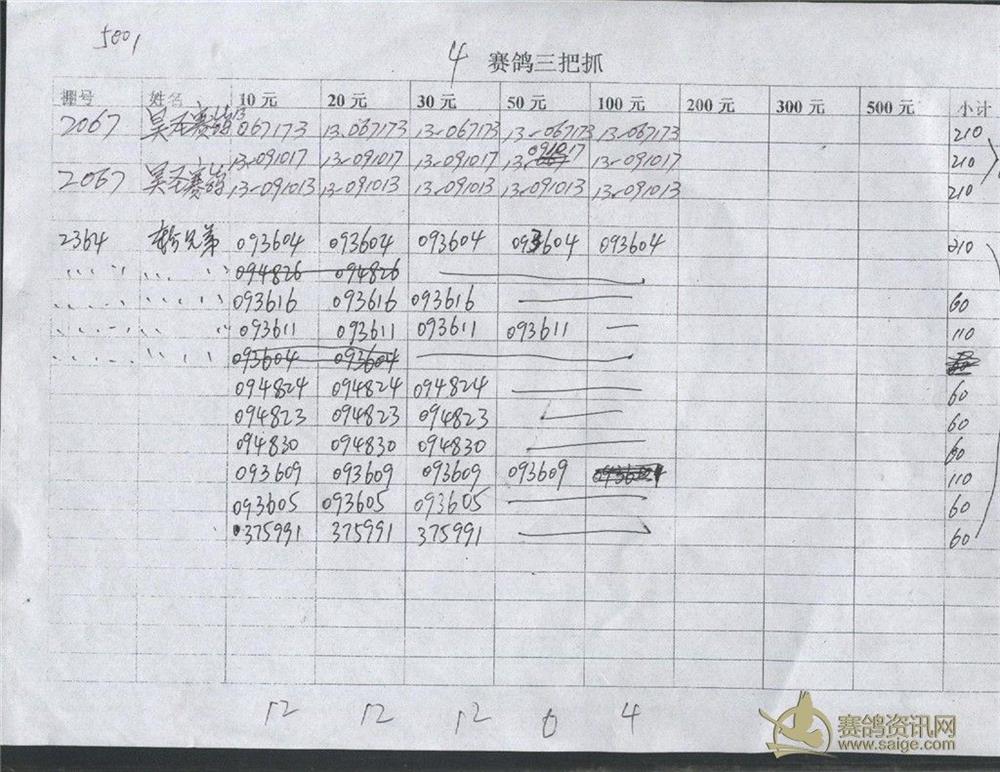 5001
4 赛鸽三把抓
棚号 姓名 10 元 20 元 30 元 50 元 100 元 200 元 300 元 500 元 小计
2067 昊天赛鸽 13-067173 13-067173 13-067173 13-067173 13-067173 210
13-091017 13-091017 13-091017 13-091017 13-091017 210
2067 昊天赛鸽 13-091013 13-091013 13-091013 13-091013 13-091013 210
2364 兄弟 093604 093604 093604 093604 093604 210
094826 094826
093616 093616 093616 60
093611 093611 093611 093611 110
093604 093604
094824 094824 094824 60
094823 094823 094823 60
094830 094830 094830 60
093609 093609 093609 093609 110
093605 093605 093605 60
375991 375991 375991 60
12 12 12 6 4
赛鸽资讯网
www.saige.com